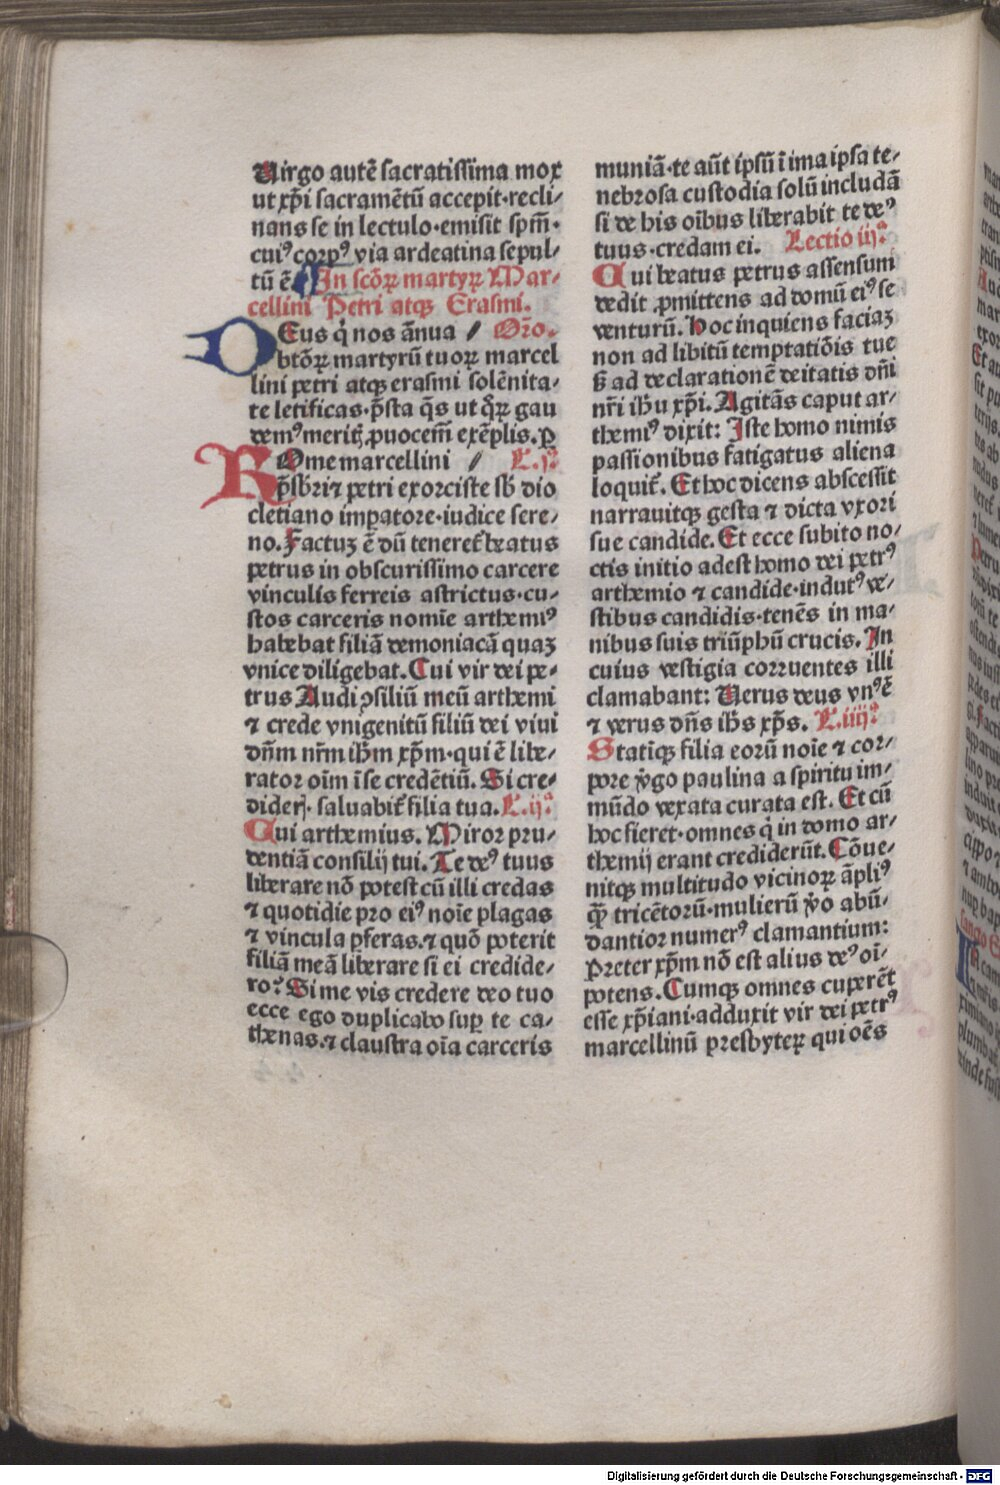 Uirgo autē sacratissima mox
ut xp̄i sacramētū accepit·recli⸗
nans se in lectulo·emisit spm̄·
cuiꝰ corpꝰ via ardeatina sepul⸗
tū ē. In scōꝝ martyꝝ Mar⸗
cellini Petri atqꝫ Erasmi.
DEus q̄ nos ānua / Orō.
btōꝝ martyrū tuoꝝ marcel
lini petri atqꝫ erasmi solēnita⸗
te letificas·p̄sta q̄s ut q̄ꝝ gau
demꝰ meritꝭ ꝓuocem̄ exēplis.ꝑ
ROme marcellini / L.jᵃ
p̄sbri ⁊ petri exorciste sb̄ dio
cletiano imꝑatore·iudice sere⸗
no. Factuꝫ ē dū teneret̄ beatus
petrus in obscurissimo carcere
vinculis ferreis astrictus·cu⸗
stos carceris nomīe arthemiꝰ
habebat filiā demoniacā quaꝫ
vnice diligebat. Cui vir dei pe⸗
trus Audi ꝯsiliū meū arthemi
⁊ crede vnigenitū filiū dei viui
dn̄m nr̄m ihm̄ xp̄m·qui ē libe⸗
rator oīm ī se credētiū. Si cre⸗
diderꝭ· saluabit̄ filia tua. L.ijᵃ
Cui arthemius. Miror pru⸗
dentiā consilij tui. Te deꝰ tuus
liberare nō potest cū illi credas
⁊ quotidie pro eiꝰ noīe plagas
⁊ vincula ꝑferas.⁊ quō poterit
filiā meā liberare si ei credide⸗
ro? Si me vis credere deo tuo
ecce ego duplicabo suꝑ te ca⸗
thenas.⁊ claustra oīa carceris
muniā·te aūt ipsū ī ima ipsa te⸗
nebrosa custodia solū includā
si de his oībus liberabit te deꝰ
tuus·credam ei. Lectio iijᵃ
Cui beatus petrus assensum
dedit ꝓmittens ad domū eiꝰ se
venturū. Hoc inquiens faciaꝫ
non ad libitū temptatiōis tue
ẞ ad declarationē deitatis dn̄i
nr̄i ihu xp̄i. Agitās caput ar⸗
themiꝰ dixit: Iste homo nimis
passionibus fatigatus aliena
loquit̄. Et hoc dicens abscessit
narrauitqꝫ gesta ⁊ dicta vxori
sue candide. Et ecce subito no⸗
ctis initio adest homo dei petrꝰ
arthemio ⁊ candide·indutꝰ ve⸗
stibus candidis·tenēs in ma⸗
nibus suis triūphū crucis. In
cuius vestigia corruentes illi
clamabant: Uerus deus vnꝰ ē
⁊ verus dn̄s ihs̄ xp̄s. L.iiijᵃ
Statīqꝫ filia eorū noīe ⁊ cor⸗
pore v̄go paulina a spiritu im⸗
mūdo vexata curata est. Et cū
hoc fieret·omnes q̄ in domo ar⸗
themij erant crediderūt. Cōue⸗
nitqꝫ multitudo vicinoꝝ āpliꝰ
q̄ꝫ tricētorū·mulierū v̄o abū⸗
dantior numerꝰ clamantium:
Preter xp̄m nō est alius deꝰ oī⸗
potens. Cumqꝫ omnes cuperēt
esse xp̄iani·adduxit vir dei petrꝰ
marcellinū presbyteꝝ qui oēs
Digitalisierung gefördert durch die Deutsche Forschungsgemeinschaft - DFG